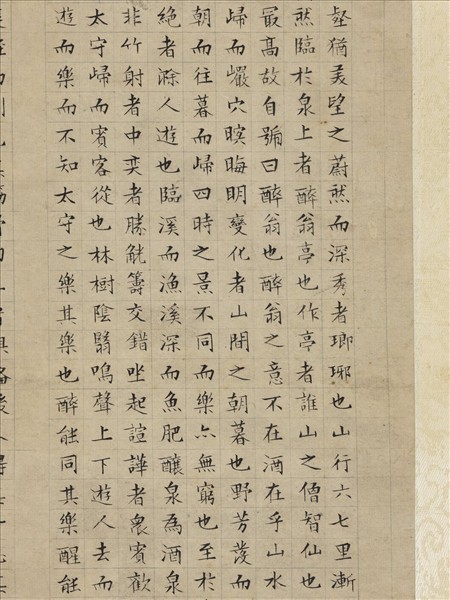 壑猶美望之蔚然而深秀者瑯琊也山行六七里漸
然臨於泉上者醉翁亭也作亭者誰山之僧智仙也
最高故自號曰醉翁也醉翁之意不在酒在乎山水
歸而巖穴暝晦明變化者山間之朝暮也野芳發而
朝而往暮而歸四時之景不同而樂亦無窮也至於
絕者滁人遊也臨溪而漁溪深而魚肥釀泉為酒泉
非竹射者中奕者勝觥籌交錯坐起諠譁者衆賓歡
太守歸而賓客從也林樹陰翳鳴聲上下遊人去而
遊而樂而不知太守之樂其樂也醉能同其樂醒能